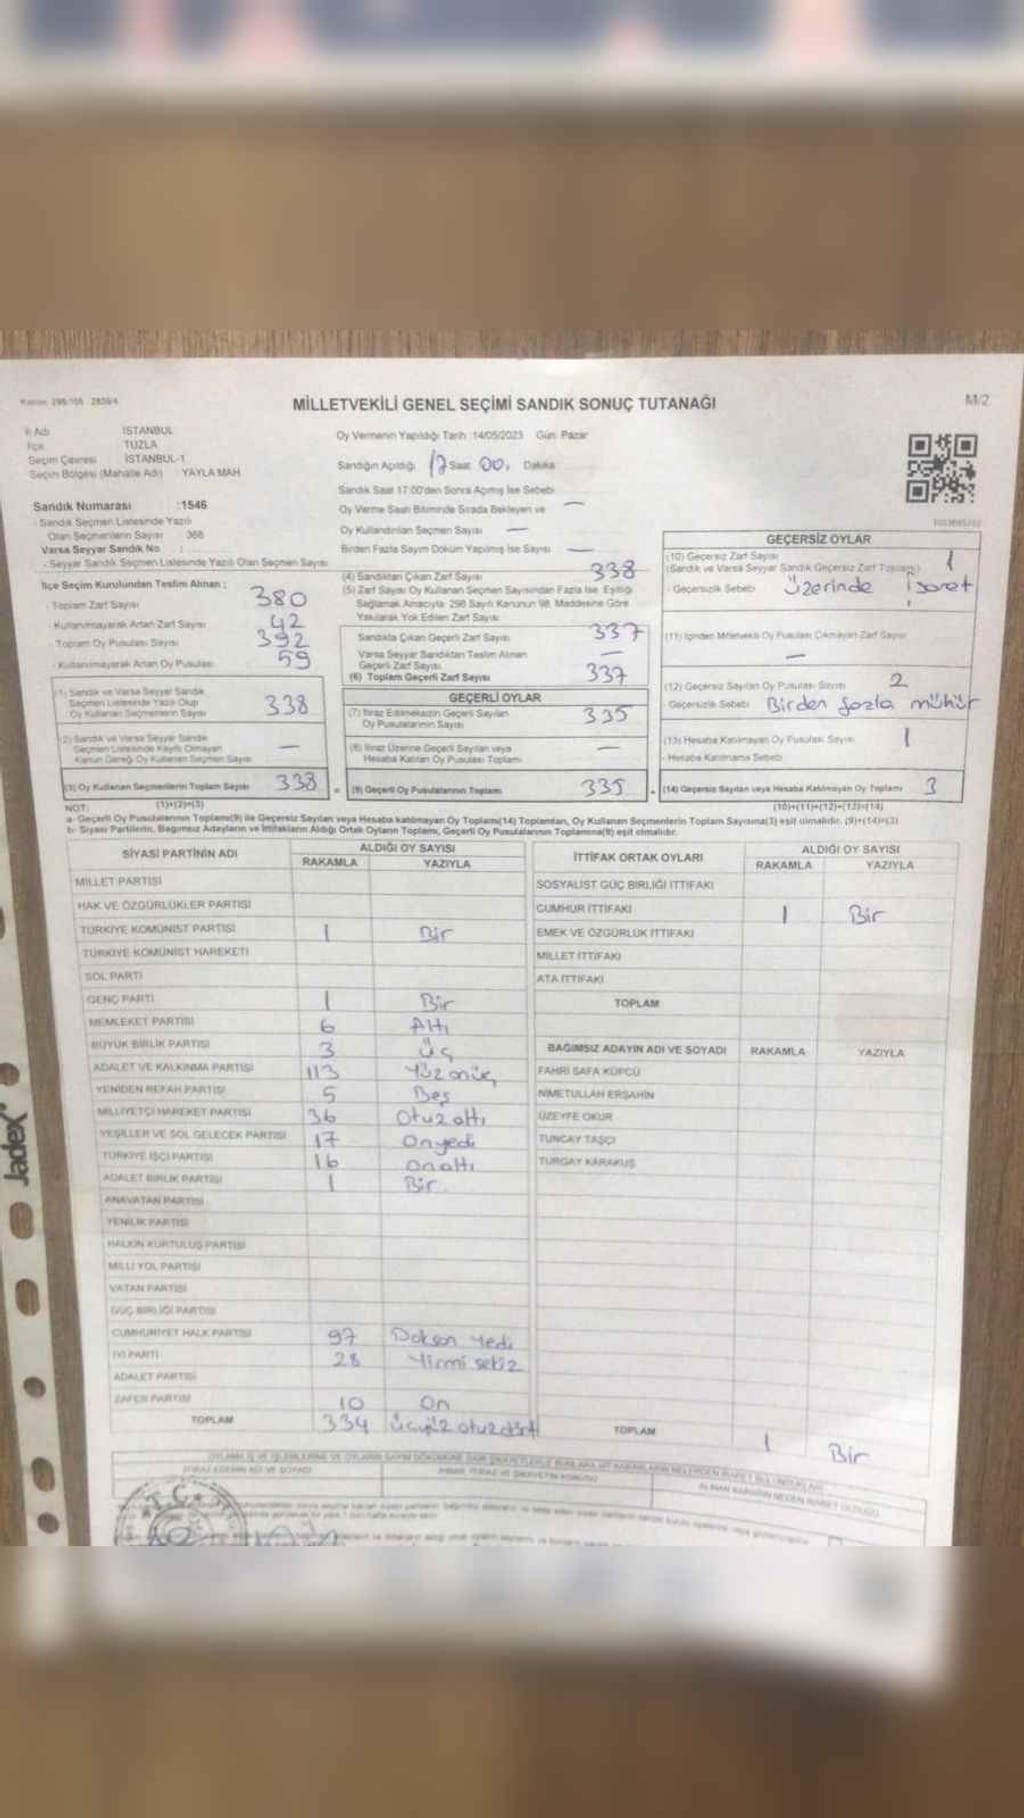 MİLLETVEKİLİ GENEL SEÇİMİ SANDIK SONUÇ TUTANAĞI
M/2
İl Adı İSTANBUL
İlçe TUZLA
Seçim Çevresi İSTANBUL-1
Seçim Bölgesi (Mahalle Adı) YAYLA MAH
Sandık Numarası :1546
Sandık Seçmen Listesinde Yazılı
Olan Seçmenlerin Sayısı 388
Varsa Seyyar Sandık No :
- Seyyar Sandık Seçmen Listesinde Yazılı Olan Seçmen Sayısı
Oy Vermenin Yapıldığı Tarih :14/05/2023 Gün: Pazar
Sandığın Açıldığı 17 Saat 00. Dakika
Sandık Saat 17:00'den Sonra Açılmış İse Sebebi
Oy Verme Saati Bitiminde Sırada Bekleyen ve —
Oy Kullandırılan Seçmen Sayısı —
Birden Fazla Sayım Döküm Yapılmış İse Sayısı —
İlçe Seçim Kurulundan Teslim Alınan :
- Toplam Zarf Sayısı 380
- Kullanılmayarak Artan Zarf Sayısı 42
- Toplam Oy Pusulası Sayısı 392
- Kullanılmayarak Artan Oy Pusulası 59
(1) Sandık ve Varsa Seyyar Sandık
Seçmen Listesinde Yazılı Olup
Oy Kullanan Seçmenlerin Sayısı 338
(2) Sandık ve Varsa Seyyar Sandık
Seçmen Listesinde Kayıtlı Olmayan
Kanun Gereği Oy Kullanan Seçmen Sayısı —
(3) Oy Kullanan Seçmenlerin Toplam Sayısı 338 =
(4) Sandıktan Çıkan Zarf Sayısı 338
(5) Zarf Sayısı Oy Kullanan Seçmen Sayısından Fazla İse, Eşitliği
Sağlamak Amacıyla 298 Sayılı Kanunun 98. Maddesine Göre
Yakılarak Yok Edilen Zarf Sayısı
Sandıkta Çıkan Geçerli Zarf Sayısı 337
Varsa Seyyar Sandıktan Teslim Alınan
Geçerli Zarf Sayısı —
(6) Toplam Geçerli Zarf Sayısı 337
GEÇERLİ OYLAR
(7) İtiraz Edilmeksizin Geçerli Sayılan
Oy Pusulalarının Sayısı 335
(8) İtiraz Üzerine Geçerli Sayılan veya
Hesaba Katılan Oy Pusulası Toplamı —
(9) Geçerli Oy Pusulalarının Toplamı 335 +
GEÇERSİZ OYLAR
(10) Geçersiz Zarf Sayısı 1
(Sandık ve Varsa Seyyar Sandık Geçersiz Zarf Toplamı)
- Geçersizlik Sebebi üzerinde işaret
(11) İçinden Milletvekili Oy Pusulası Çıkmayan Zarf Sayısı
—
(12) Geçersiz Sayılan Oy Pusulası Sayısı 2
Geçersizlik Sebebi Birden fazla mühür
(13) Hesaba Katılmayan Oy Pusulası Sayısı 1
- Hesaba Katılmama Sebebi
(14) Geçersiz Sayılan veya Hesaba Katılmayan Oy Toplamı 3
NOT: (1)+(2)=(3)
(10)+(11)+(12)+(13)=(14)
a- Geçerli Oy Pusulalarının Toplamı(9) ile Geçersiz Sayılan veya Hesaba katılmayan Oy Toplamı(14) Toplamları, Oy Kullanan Seçmenlerin Toplam Sayısına(3) eşit olmalıdır. (9)+(14)=(3)
b- Siyasi Partilerin, Bağımsız Adayların ve İttifakların Aldığı Ortak Oyların Toplamı, Geçerli Oy Pusulalarının Toplamına(9) eşit olmalıdır.
SİYASİ PARTİNİN ADI ALDIĞI OY SAYISI
RAKAMLA YAZIYLA
MİLLET PARTİSİ
HAK VE ÖZGÜRLÜKLER PARTİSİ
TÜRKİYE KOMÜNİST PARTİSİ 1 Bir
TÜRKİYE KOMÜNİST HAREKETİ
SOL PARTİ
GENÇ PARTİ 1 Bir
MEMLEKET PARTİSİ 6 Altı
BÜYÜK BİRLİK PARTİSİ 3 Üç
ADALET VE KALKINMA PARTİSİ 113 Yüz onüç
YENİDEN REFAH PARTİSİ 5 Beş
MİLLİYETÇİ HAREKET PARTİSİ 36 Otuz altı
YEŞİLLER VE SOL GELECEK PARTİSİ 17 Onyedi
TÜRKİYE İŞÇİ PARTİSİ 16 onaltı
ADALET BİRLİK PARTİSİ 1 Bir
ANAVATAN PARTİSİ
YENİLİK PARTİSİ
HALKIN KURTULUŞ PARTİSİ
MİLLİ YOL PARTİSİ
VATAN PARTİSİ
GÜÇ BİRLİĞİ PARTİSİ
CUMHURİYET HALK PARTİSİ 97 Doksan Yedi
İYİ PARTİ 28 Yirmi sekiz
ADALET PARTİSİ
ZAFER PARTİSİ 10 On
TOPLAM 334 üçyüz otuzdört
İTTİFAK ORTAK OYLARI ALDIĞI OY SAYISI
RAKAMLA YAZIYLA
SOSYALİST GÜÇ BİRLİĞİ İTTİFAKI
CUMHUR İTTİFAKI 1 Bir
EMEK VE ÖZGÜRLÜK İTTİFAKI
MİLLET İTTİFAKI
ATA İTTİFAKI
TOPLAM
BAĞIMSIZ ADAYIN ADI VE SOYADI RAKAMLA YAZIYLA
FAHRİ SAFA KÜPCÜ
NİMETULLAH ERŞAHİN
ÜZEYFE OKUR
TUNCAY TAŞÇI
TURGAY KARAKUŞ
TOPLAM 1 Bir
T.C.
Jadex